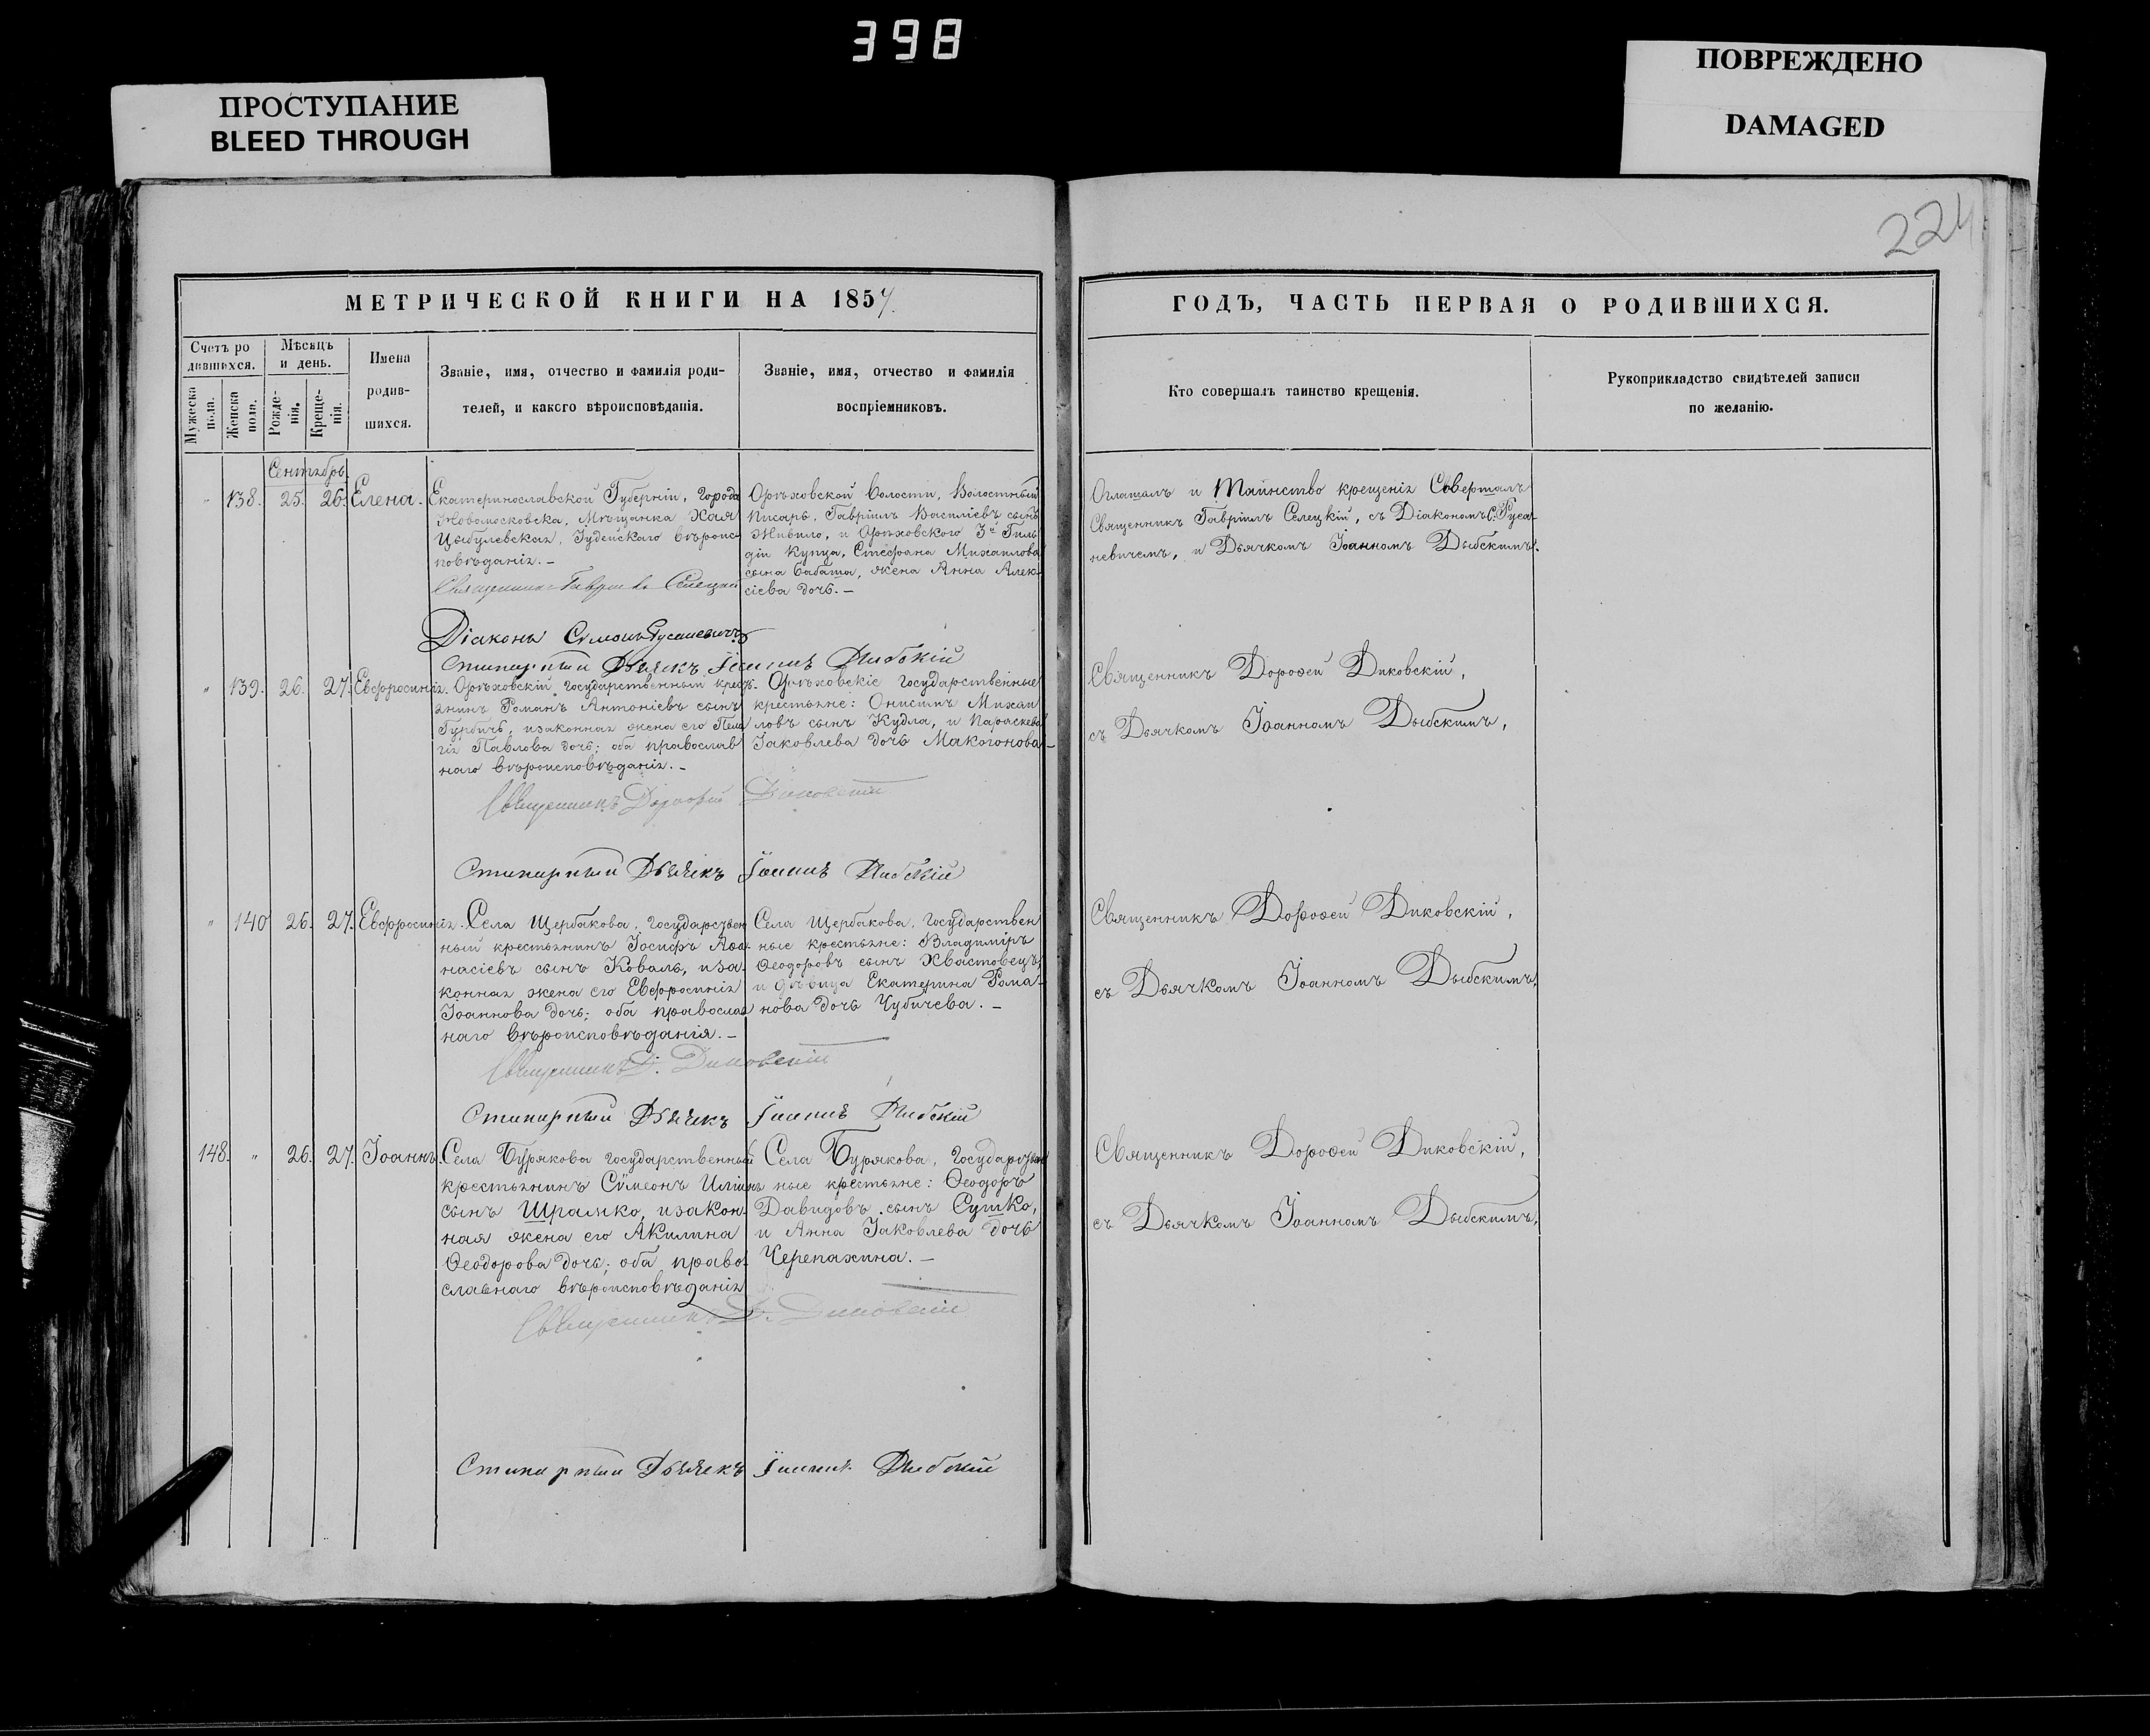 398
ПРОСТУПАНИЕ
BLEED THROUGH
ПОВРЕЖДЕНО
DAMAGED
224
МЕТРИЧЕСКОЙ КНИГИ НА 1857.
Счетъ ро
дившихся.
Мужеска
пола.
Женска
пола.
Мѣсяцъ
и день.
Рожде-
нія.
Креще-
нія.
Имена
родив-
шихся.
Званіе, имя, отчество и фамилія роди-
телей, и какого вѣроисповѣданія.
Званіе, имя, отчество и фамилія
воспріемниковъ.
Сентябрь
" 138. 25. 26. Елена.
Екатеринославской Губерніи, города
Новомосковска, Мѣщанка Хая
Цыбулевская, Іудейскаго вѣроис-
повѣданія. –
Священникъ Гавріилъ Селецкій
Орѣховской волости, Волостный
писарь, Гавріилъ Василіевъ сынъ
Живило, и Орѣховского 3й Гиль
діи купца, Стефана Михаилова
сына Бабата, жена Анна Алек-
сіева дочь. –
Діаконъ Сѵмеонъ Русаневичъ
Стихарный Дьячекъ Іоаннъ Дыбскій
" 139. 26. 27. Евфросинія.
Орѣховскій государственный кресть-
янинъ Романъ Антоніевъ сынъ
Гурбичъ, изаконная жена его Пела
гія Павлова дочь; оба православ
наго вѣроисповѣданія. –
Орѣховскіе государственные
крестьяне: Онисимъ Михаи
ловъ сынъ Кудла, и Параскева
Іаковлева дочь Макогонова –
Священникъ Дороѳей Диковскій
Стихарный Дьячекъ Іоаннъ Дыбскій
" 140 26. 27. Евфросинія.
Села Щербакова, государствен
ный крестьянинъ Іосифъ Аѳа-
насіевъ сынъ Коваль, иза-
конная жена его Евфросинія
Іоаннова дочь; оба православ
наго вѣроисповѣданія. –
Села Щербакова, Государствен
ные крестьяне: Владиміръ
Ѳеодоровъ сынъ Хвастовецъ,
и дѣвица Екатерина Рома-
нова дочь Чубичева. –
Священникъ Д. Диковскій
Стихарный Дьячекъ Іоаннъ Дыбскій
148. " 26. 27. Іоаннъ.
Села Бурякова государственный
крестьянинъ Сѵмеонъ Иліинъ
сынъ Шрамко, изакон-
ная жена его Акилина
Ѳеодорова дочь; оба право-
славнаго вѣроисповѣданія
Села Бурякова, Государствен
ные крестьяне: Ѳеодоръ
Давидовъ сынъ Сушко,
и Анна Іаковлева дочь
Черепахина. –
Священникъ Д. Диковскій
Стихарный Дьячекъ Іоаннъ Дыбскій
ГОДЪ, ЧАСТЬ ПЕРВАЯ О РОДИВШИХСЯ.
Кто совершалъ таинство крещенія.
Рукоприкладство свидѣтелей записи
по желанію.
Оглашалъ и Таинство крещенія Совершалъ
Священникъ Гавріилъ Селецкій, съ Діакономъ С. Руса-
невичемъ, и Дьячкомъ Іоанномъ Дыбскимъ.
Священникъ Дороѳей Диковскій,
съ Дьячкомъ Іоанномъ Дыбскимъ,
Священникъ Дороѳей Диковскій,
съ Дьячкомъ Іоанномъ Дыбскимъ,
Священникъ Дороѳей Диковскій,
съ Дьячкомъ Іоанномъ Дыбскимъ,